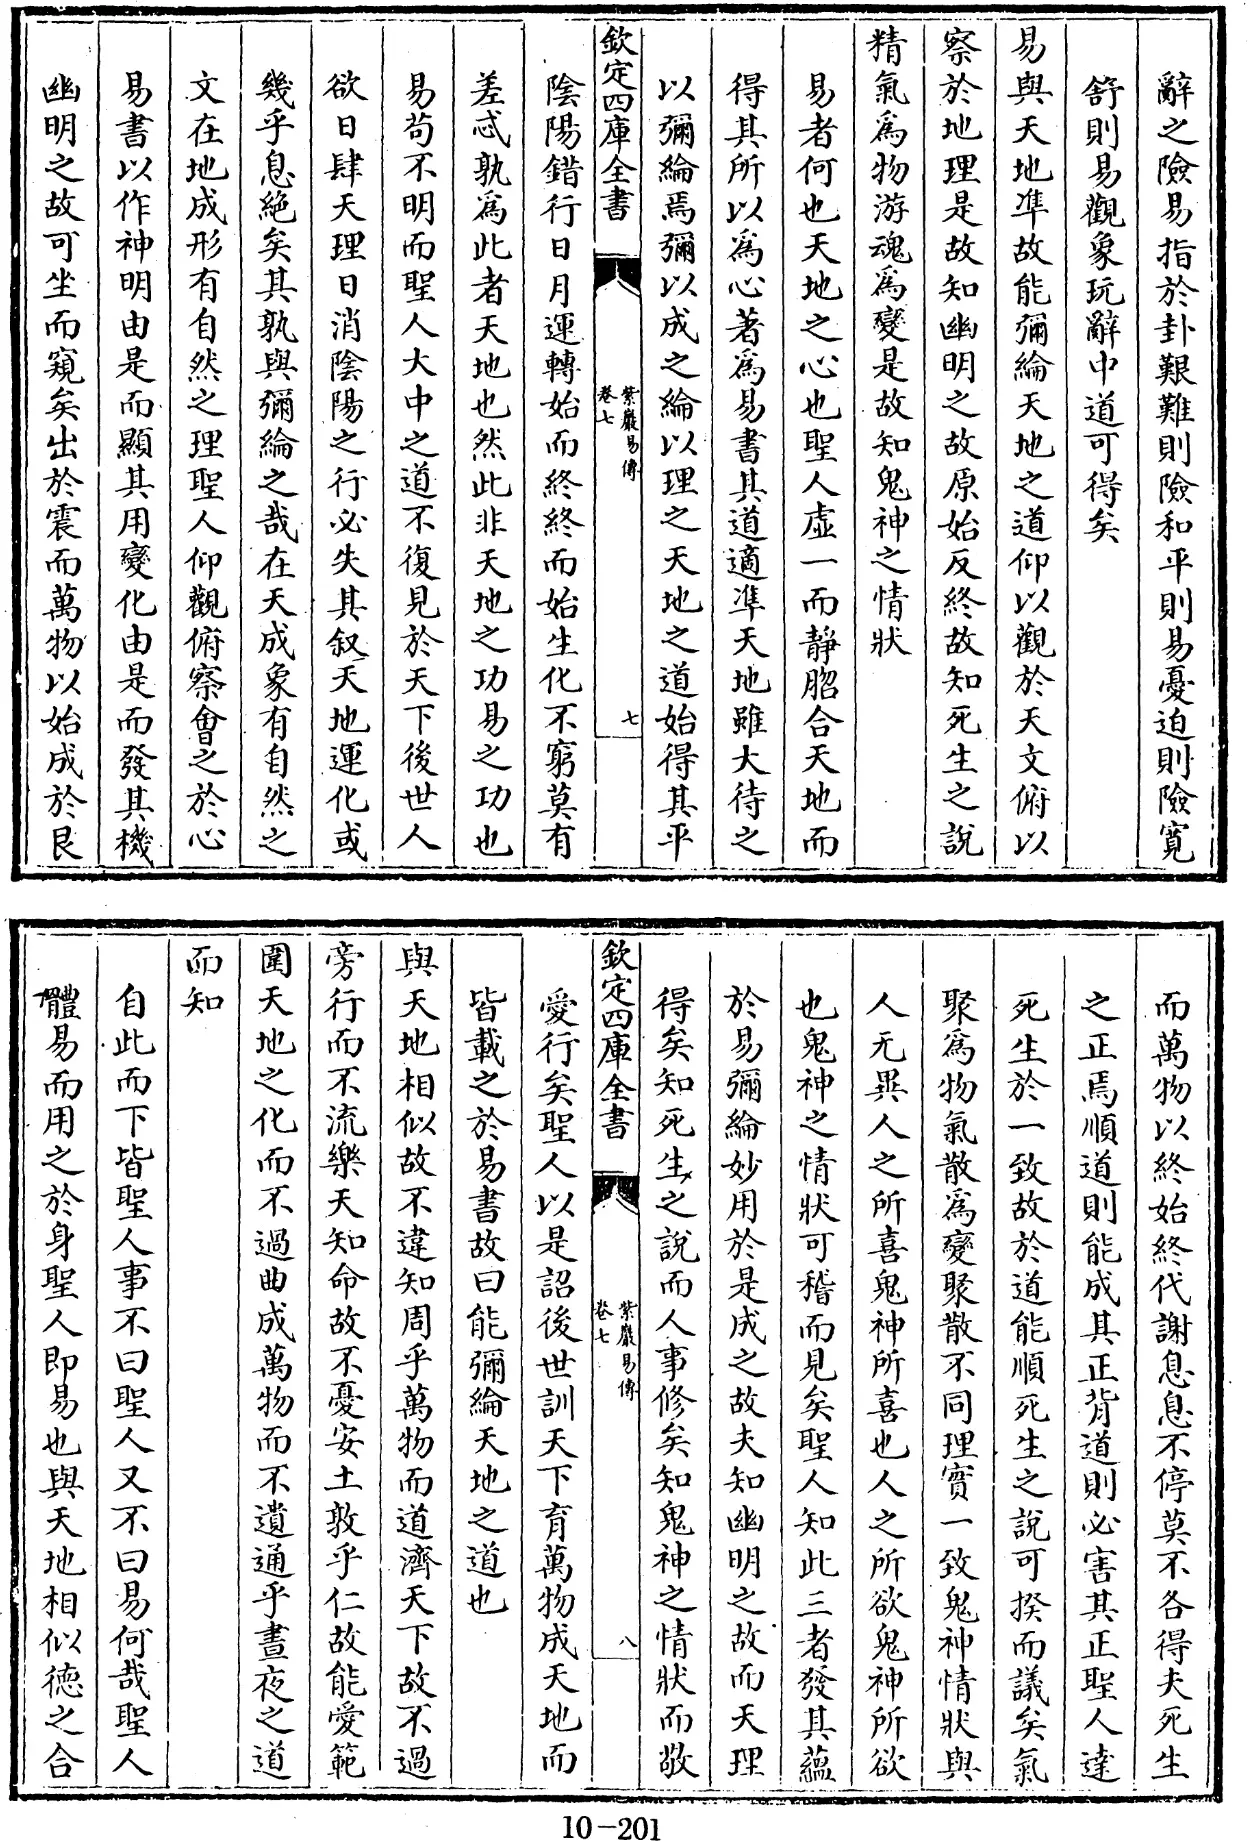 辭之險易指於卦艱難則險和平則易憂迫則險寬
舒則易觀象玩辭中道可得矣
易與天地準故能彌綸天地之道仰以觀於天文俯以
察於地理是故知幽明之故原始反終故知死生之說
精氣為物游魂為變是故知鬼神之情狀
易者何也天地之心也聖人虛一而靜脗合天地而
得其所以為心著為易書其道適準天地雖大待之
以彌綸焉彌以成之綸以理之天地之道始得其平
欽定四庫全書
紫巖易傳
卷七
七
陰陽錯行日月運轉始而終終而始生化不窮莫有
差忒孰為此者天地也然此非天地之功易之功也
易苟不明而聖人大中之道不復見於天下後世人
欲日肆天理日消陰陽之行必失其叙天地運化或
幾乎息絶矣其孰與彌綸之哉在天成象有自然之
文在地成形有自然之理聖人仰觀俯察會之於心
易書以作神明由是而顯其用變化由是而發其機
幽明之故可坐而窺矣出於震而萬物以始成於艮
而萬物以終始終代謝息息不停莫不各得夫死生
之正焉順道則能成其正背道則必害其正聖人達
死生於一致故於道能順死生之說可揆而議矣氣
聚為物氣散為變聚散不同理實一致鬼神情狀與
人无異人之所喜鬼神所喜也人之所欲鬼神所欲
也鬼神之情狀可稽而見矣聖人知此三者發其蘊
於易彌綸妙用於是成之故夫知幽明之故而天理
得矣知死生之說而人事修矣知鬼神之情狀而敬
欽定四庫全書
紫巖易傳
卷七
八
愛行矣聖人以是詔後世訓天下育萬物成天地而
皆載之於易書故曰能彌綸天地之道也
與天地相似故不違知周乎萬物而道濟天下故不過
旁行而不流樂天知命故不憂安土敦乎仁故能愛範
圍天地之化而不過曲成萬物而不遺通乎晝夜之道
而知
自此而下皆聖人事不曰聖人又不曰易何哉聖人
體易而用之於身聖人即易也與天地相似德之合
10-201